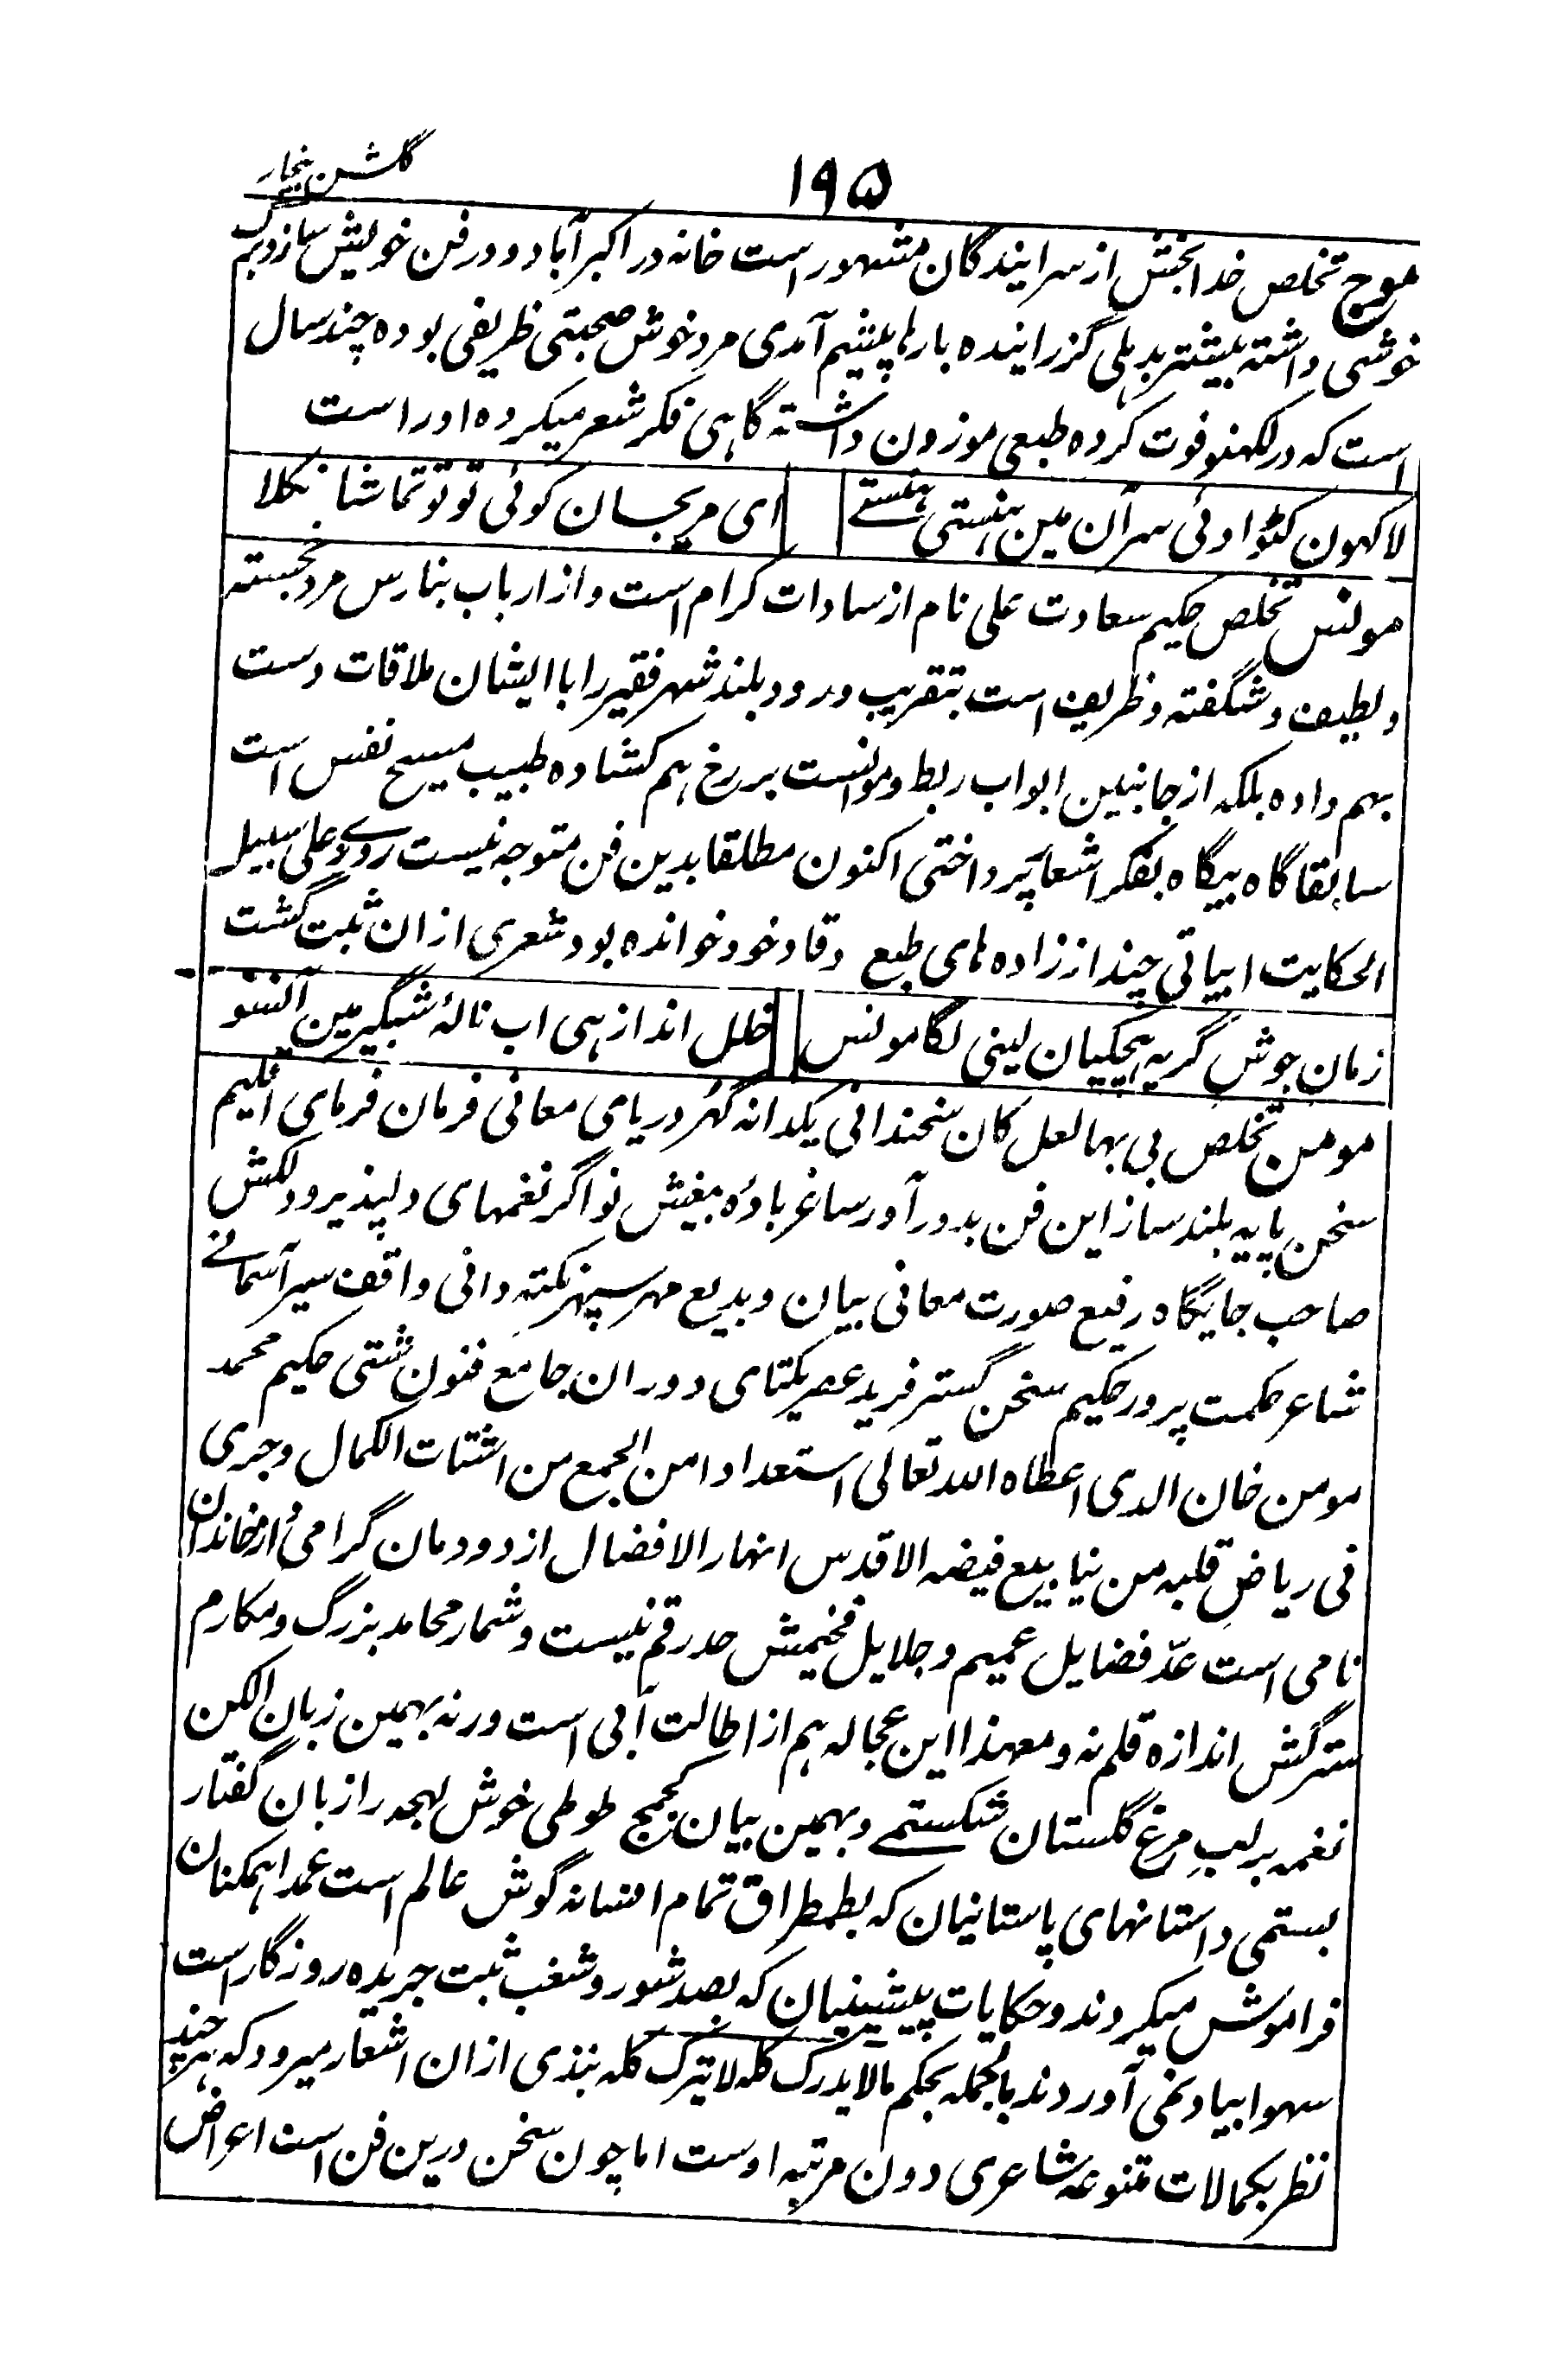 ۱۹۵
گلشن بیخار
موج تخلص خدابخش از سرایندگان مشهور است خانه در اکبرآباد و در فن خویش ساز و برگ
خوشی داشته بیشتر بدہلی گزرانیده بارہا پیشم آمدی مرد خوش صحبتی ظریفی بوده چند سال
است که در لکہنو فوت کرده طبعی موزون داشته گاہی فکر شعر میکرده او راست
لاکہون کٹوا دئی سر آن مین ہنستی ہنستے
ای مریجان کوئی تو تو تماشا نکلا
مونس تخلص حکیم سعادت علی نام از سادات کرام است و از ارباب بنارس مرد خجسته
و لطیف و شگفته و ظریف است بتقریب ورود بلند شہر فقیر را با ایشان ملاقات دست
بہم داده بلکه از جانبین ابواب ربط و موانست بر رخ ہم کشاده طبیب مسیح نفس است
سابقا گاه بیگاه بفکر اشعار پرداختی اکنون مطلقا بدین فن متوجه نیست روزے علی سبیل
الحکایت ابیاتی چند از زاده ہای طبع وقاد خود خوانده بود شعری ازان ثبت گشت
زمانِ جوشِ گریه ہچکیان لینی لگا مونس
خلل انداز ہی اب نالۂ شبگیر مین آنسو
مومن تخلص بی بہا لعل کان سخندانی یکدانه گہر دریای معانی فرمان فرمای اقلیم
سخن پایه بلند ساز این فن بدور آور ساغر بادۂ بیغش نواگر نغمہای دلپذیر و دلکش
صاحب جایگاه رفیع صورت معانی بیان و بدیع مہر سپہر نکته دانی واقف سیر آسمانے
شاعر حکمت پرور حکیم سخن گستر فرید عصر یکتای دوران جامع فنون شتی حکیم محمد
مومن خان الذی اعطاه اللہ تعالی استعدادا من الجمع من اشتات الکمال و جری
فی ریاض قلبه من ینابیع فیضه الاقدس انہار الافضال از دودمان گرامی و از خاندان
نامی است عدّ فضایل عمیم و جلایل فخیمش حد رقم نیست و شمار محامد بزرگ و مکارم
سترگش اندازه قلم نه و معہذا این عجاله ہم از اطالت آبی است ورنه بہمین زبان الکن
نغمه بر لبِ مرغ گلستان شکستمے و بہمین بیان کجمج طوطی خوش لہجه را زبان گفتار
بستمی داستانہای پاستانیان که بطمطراق تمام افسانه گوش عالم است عمدا ہمکنان
فراموش میکردند و حکایات پیشینیان که بصد شور و شغب ثبت جریده روزگار است
سہوا بیاد نمی آوردند بالجمله بحکم مالا یدرک کله لا یترک کله نبذی ازان اشعار میرود که ہر چند
نظر بکمالات متنوعه شاعری دون مرتبه اوست اما چون سخن درین فن است اعراض